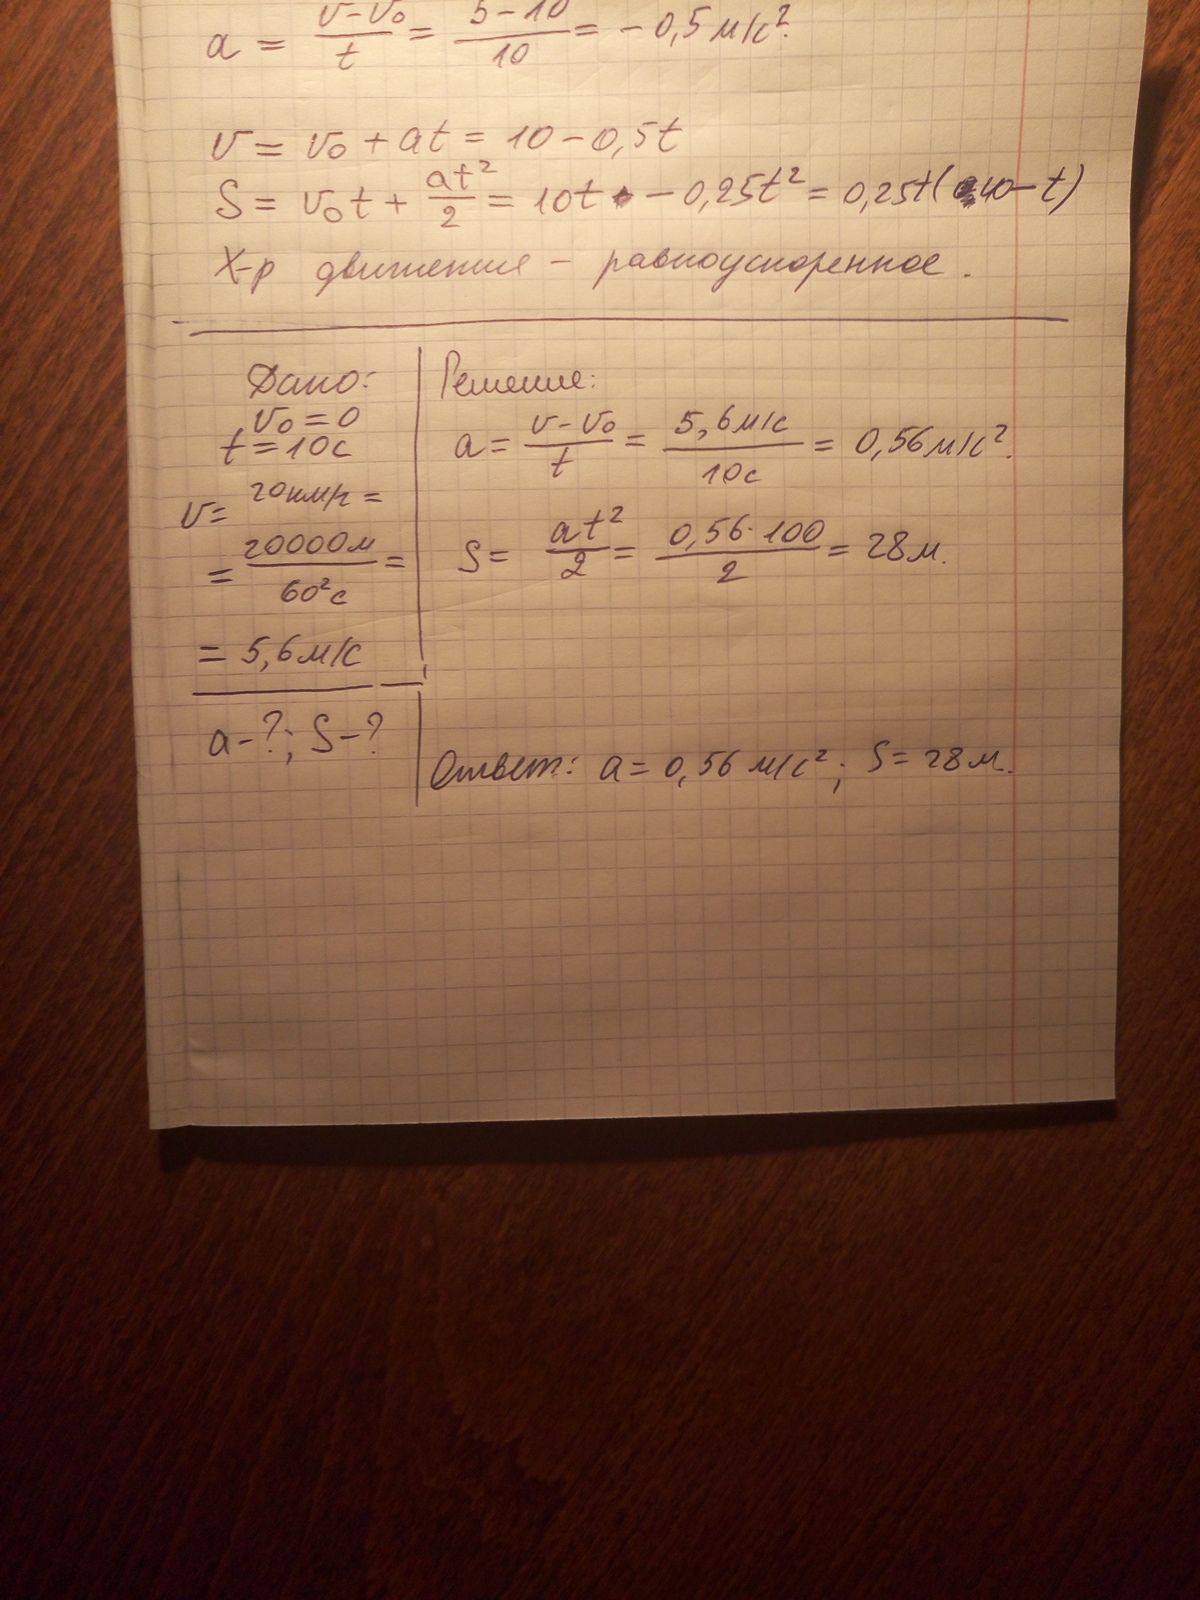 a = v-v₀/t = 5-10/10 = -0,5 м/с².
v = v₀ + at = 10 - 0,5t
S = v₀t + at²/2 = 10t - 0,25t² = 0,25t(40-t)
Х-р движения - равноускоренное.
Дано:
v₀ = 0
t = 10с
v = 20км/ч =
= 20000м/60²с =
= 5,6 м/с
a-?; S-?
Решение:
a = v-v₀/t = 5,6м/с/10с = 0,56м/с².
S = at²/2 = 0,56·100/2 = 28м.
Ответ: a = 0,56 м/с²; S = 28м.